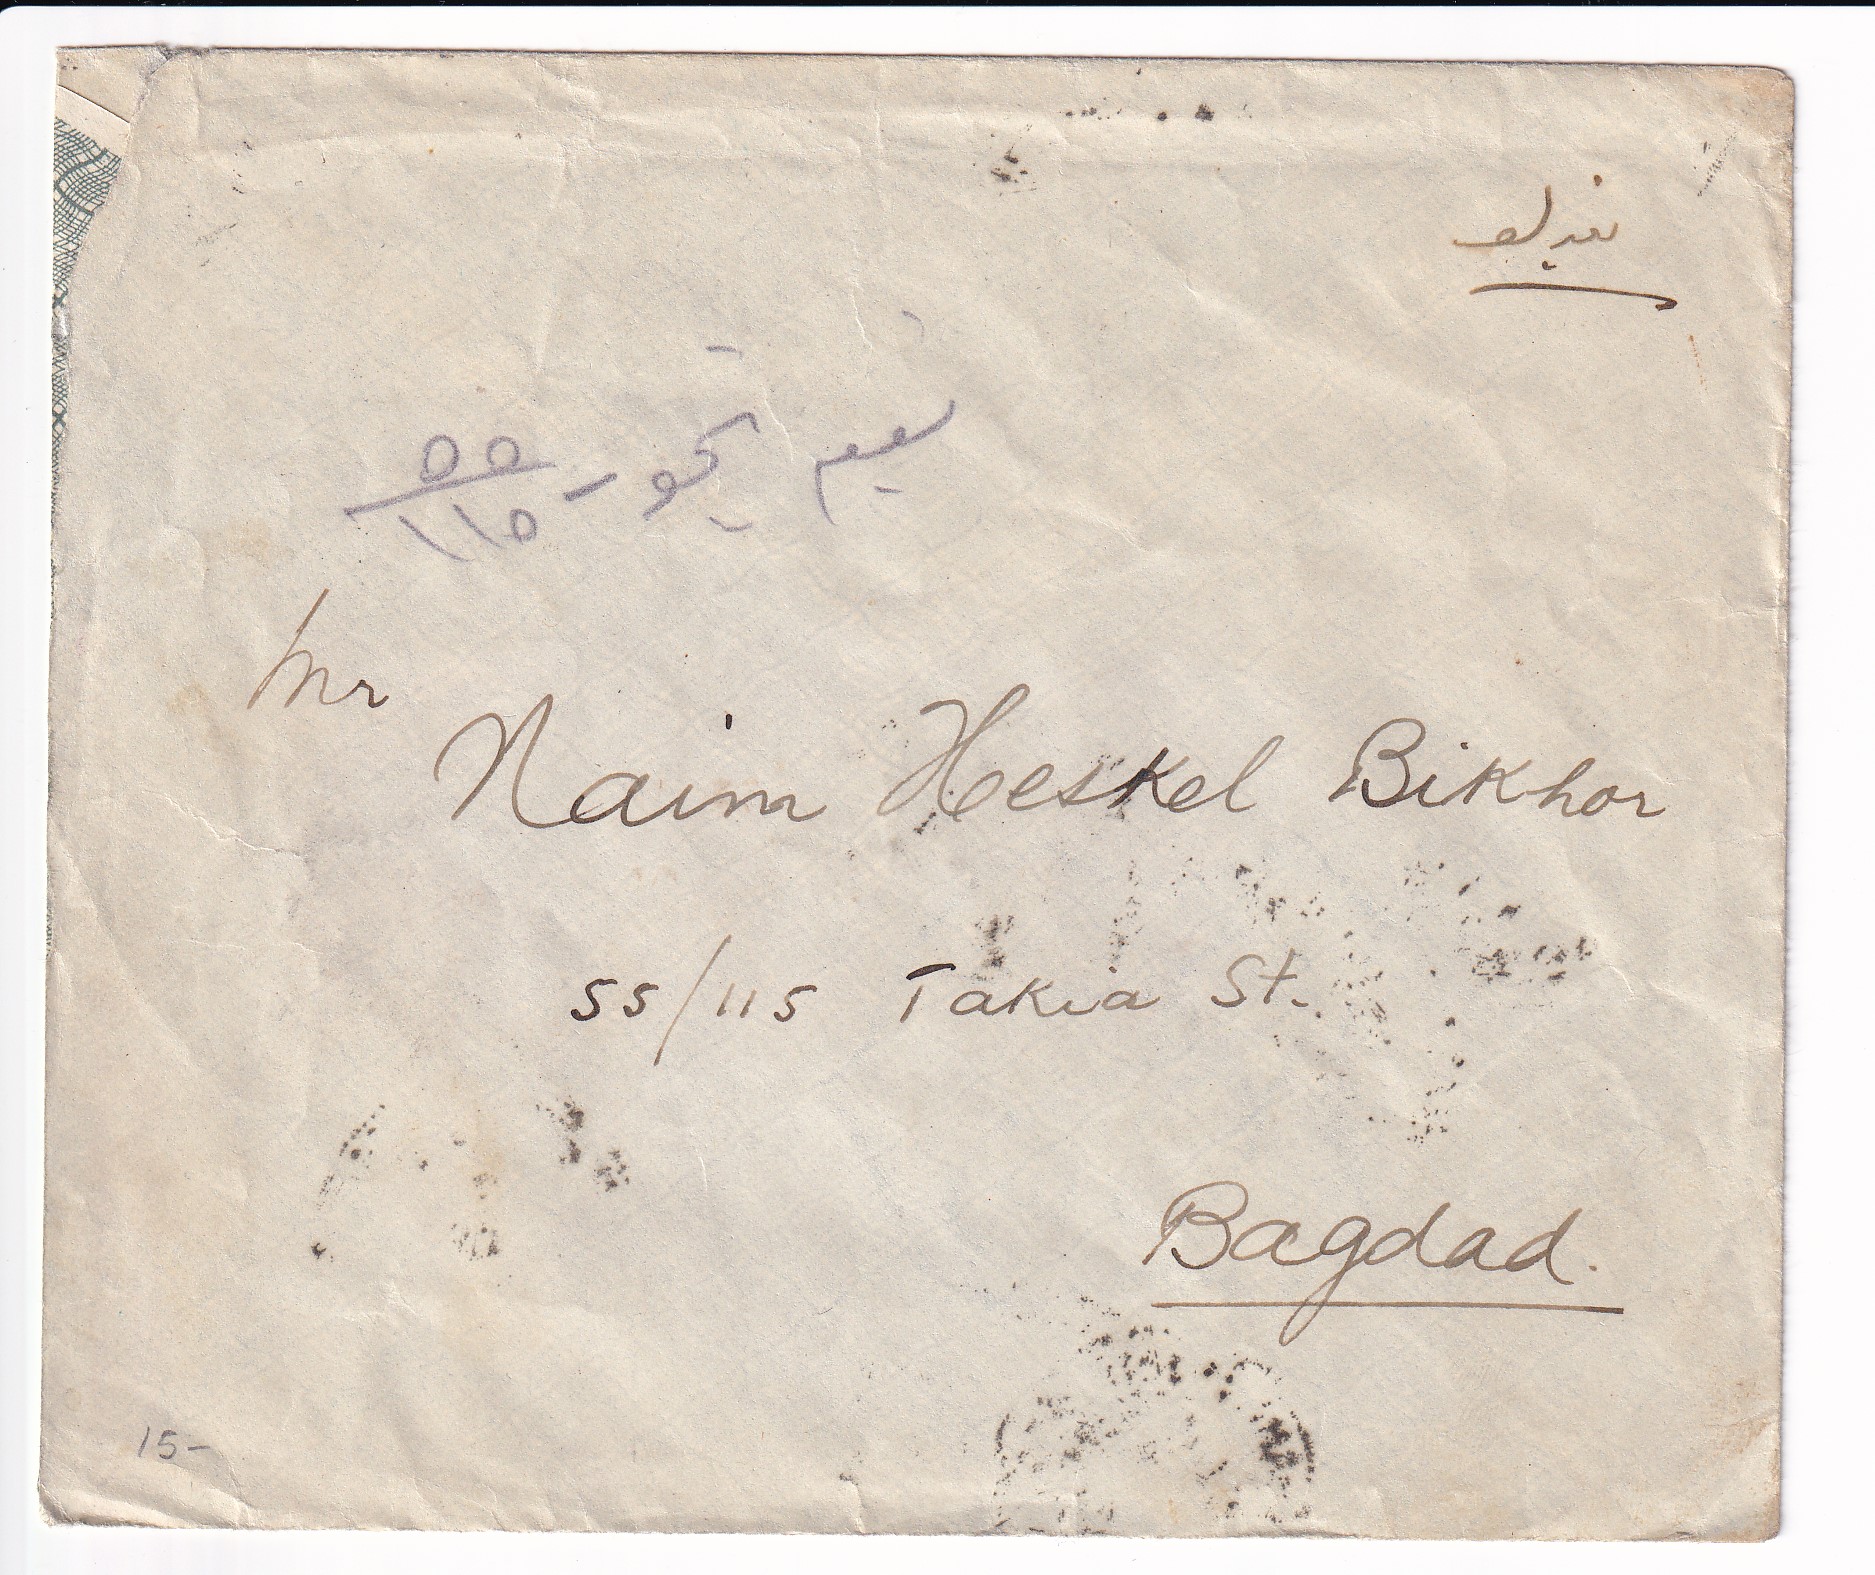 نعيم بخور - ٥٥/١١٥
Mr
Naim Heskel Bikhor
55/115 Takia St.
Bagdad.
15-